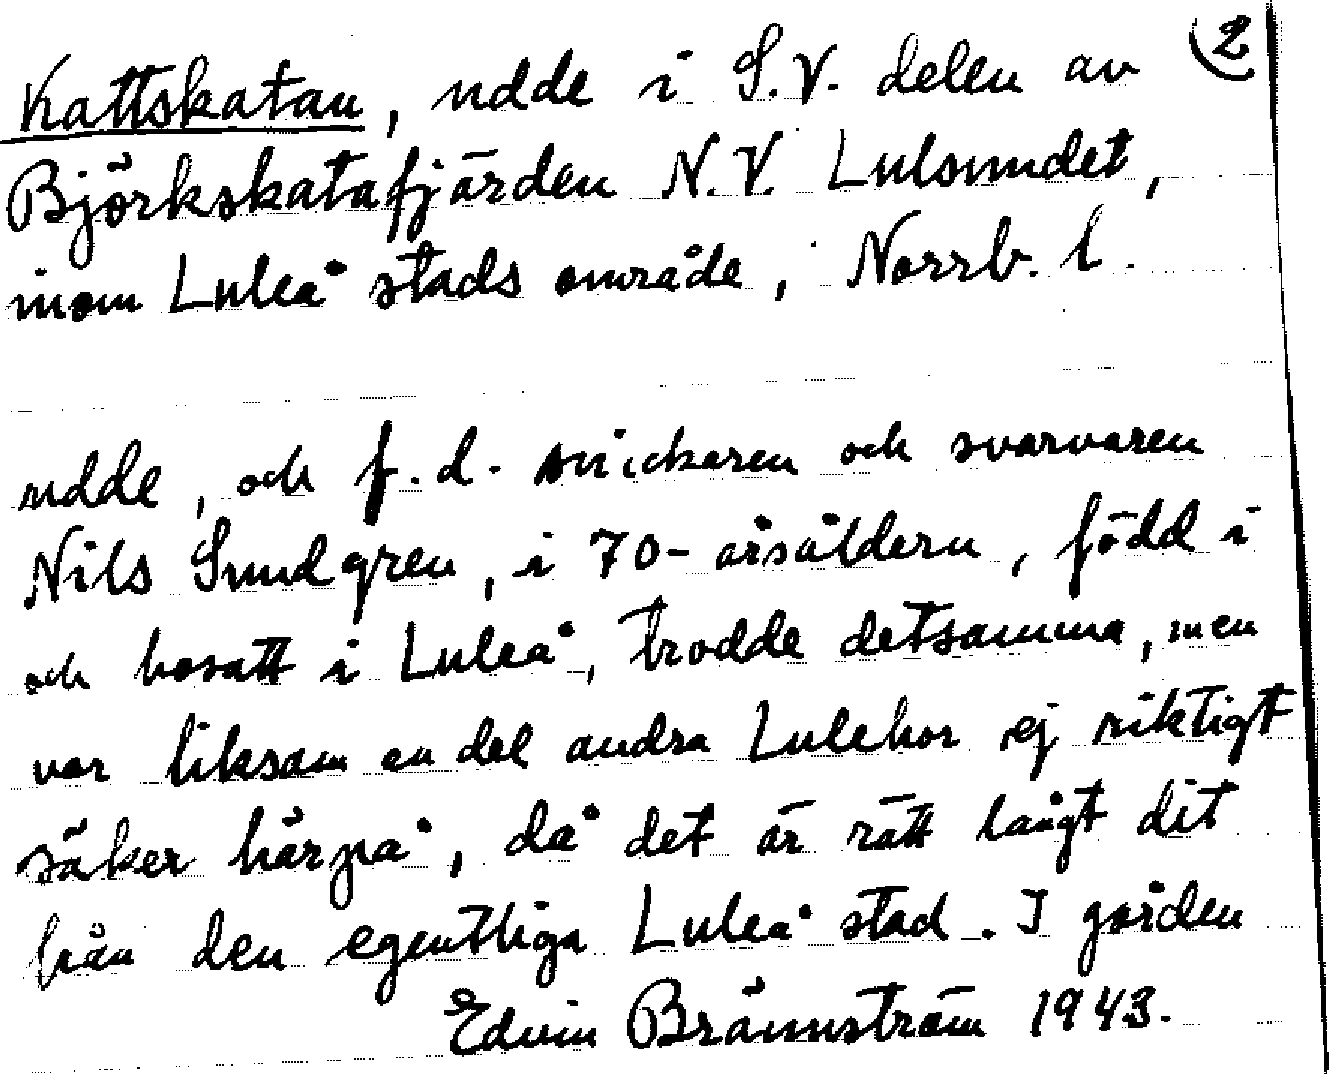 Kattskatan, udde i S.V. delen av (2
Björkskatafjärden N.V. Lulsundet,
inom Luleå stads område, Norrb. l.
udde, och f.d. snickaren och svarvaren
Nils Sundgren, i 70-årsåldern, född i
och bosatt i Luleå, trodde detsamma, men
var liksom en del andra Lulebor ej riktigt
säker härpå, då det är rätt långt dit
från den egentliga Luleå stad. I gården
Edvin Brännström 1943.